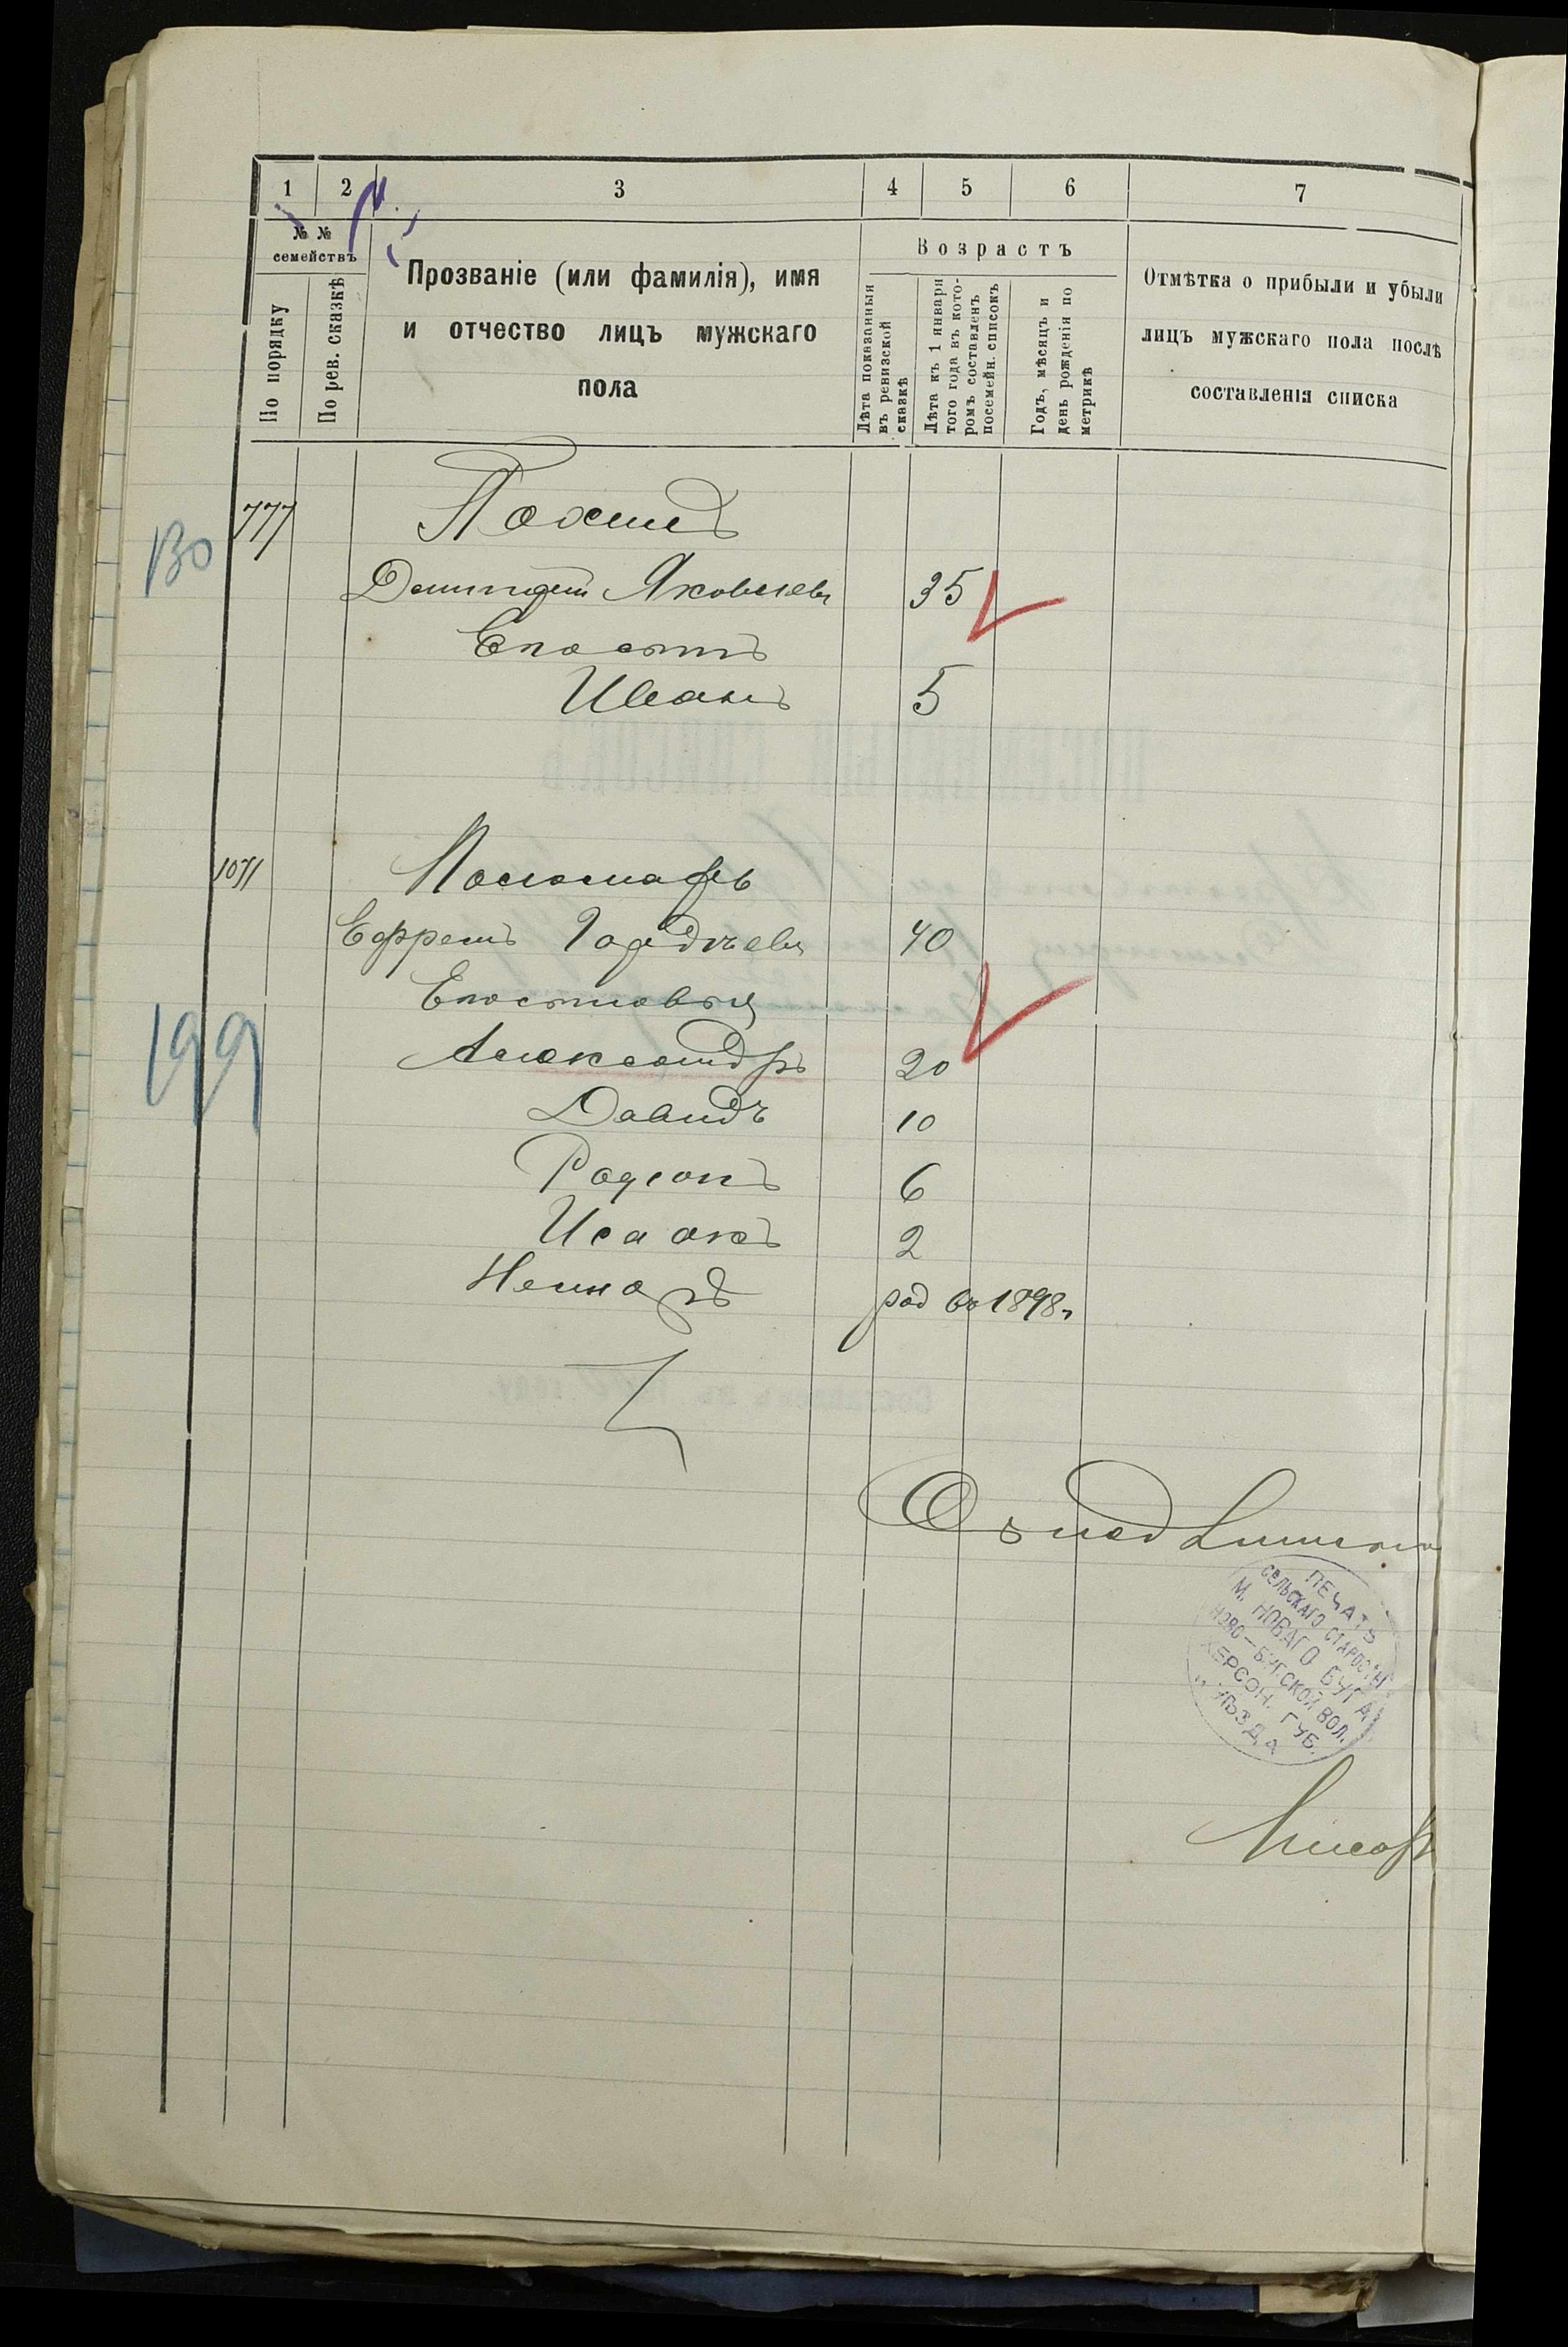 1 2 3 4 5 6 7
№ №
семействъ
По порядку
По рев. сказкѣ
Прозваніе (или фамилія), имя
и отчество лицъ мужскаго
пола
Возрастъ
Лѣта показанныя
въ ревизской
сказкѣ
Лѣта къ 1 января
того года въ кото-
ромъ составленъ
посемейн. списокъ
Годъ, мѣсяцъ и
день рожденія по
метрикѣ
Отмѣтка о прибыли и убыли
лицъ мужскаго пола послѣ
составленія списка
777
130
Яковлевъ 35
Его сынъ
Иванъ 5
1071
Пономарь
Ефремъ Гордѣевъ 40
Его сыновья
199
Александръ 20
Давидъ 10
Родіонъ 6
Исаакъ 2
род въ 1898 г
ПЕЧАТЬ
СЕЛЬСКАГО СТАРОСТЫ
М. НОВАГО БУГА
НОВО-БУГСКОЙ ВОЛ.
ХЕРСОН. ГУБ.
УѢЗДА
Писарь